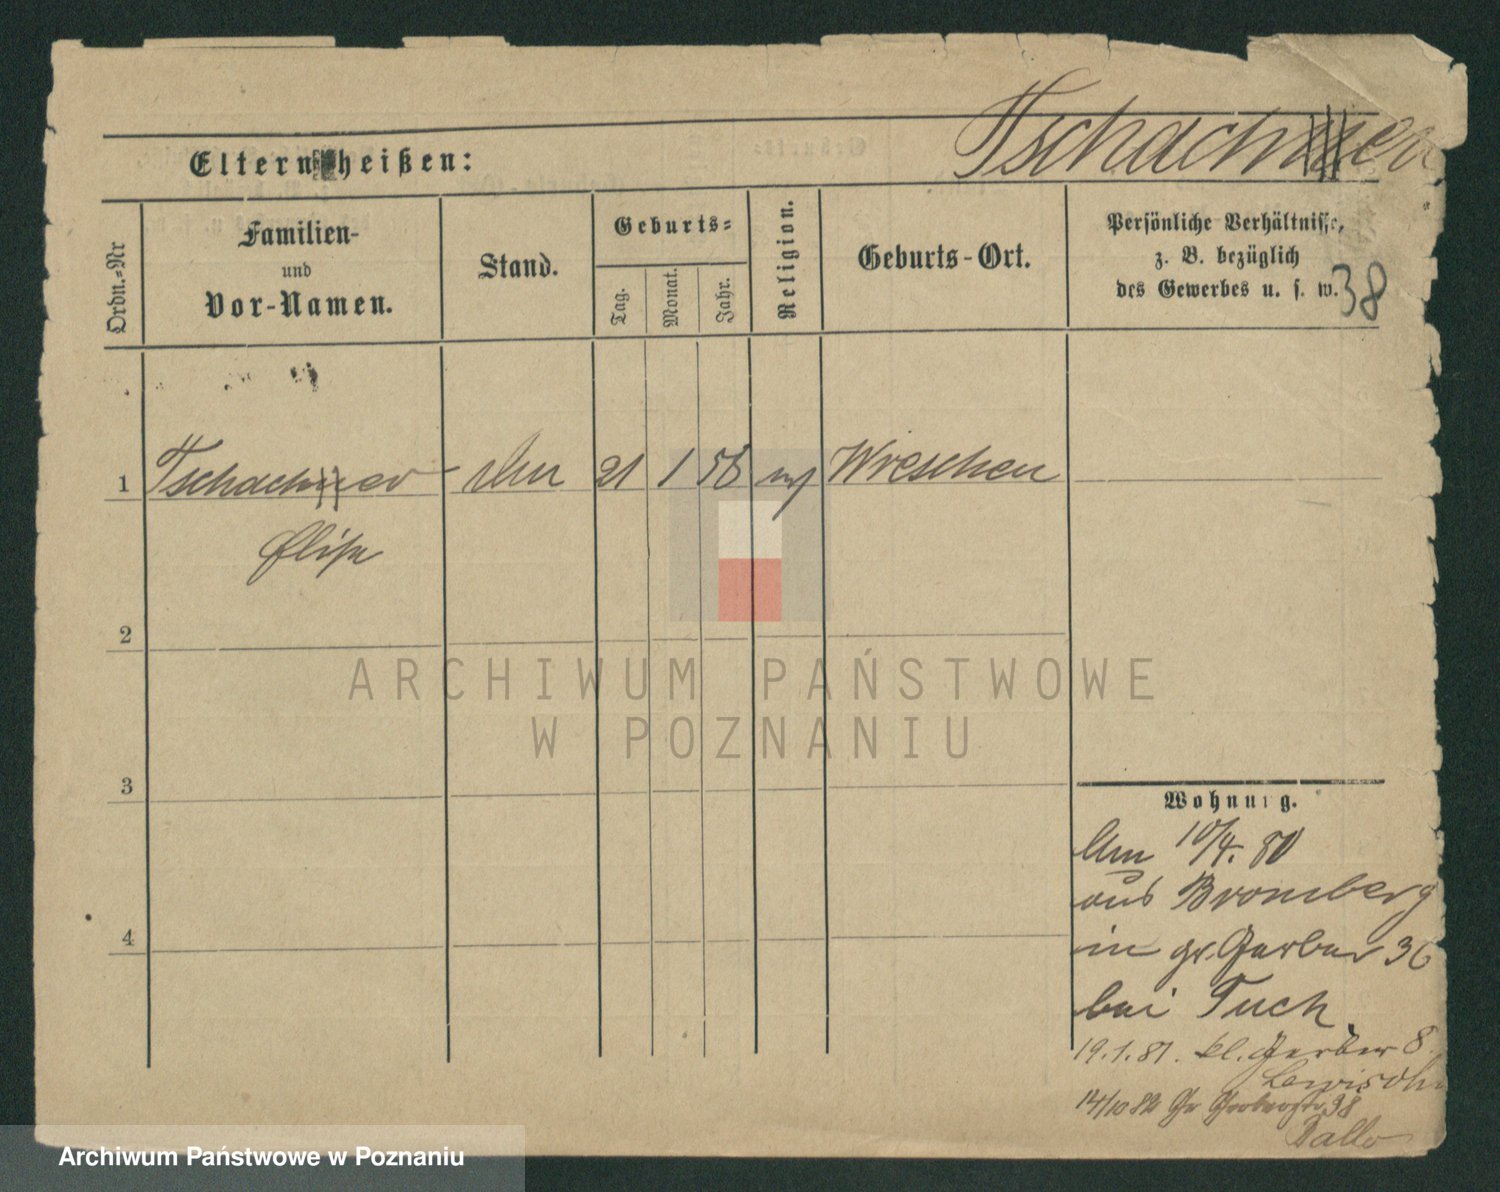 Tschachner
Eltern heißen:
Ordn.=Nr
Familien-
und
Vor-Namen.
Stand.
Geburts=
Tag.
Monat.
Jahr.
Religion.
Geburts-Ort.
Persönliche Verhältnisse,
z. B. bezüglich
des Gewerbes u. s. w.
38
1 Tschachner 21 1 56 Wreschen
2
3
4
Wohnung.
10/4. 80
aus Bromberg
in gr. Gerber 36
bei Tuch
19.1.81. kl. Gerber 8.
Lewisohn
14/10 82 Gr Gerberstr 38
ARCHIWUM PAŃSTWOWE
W POZNANIU
Archiwum Państwowe w Poznaniu